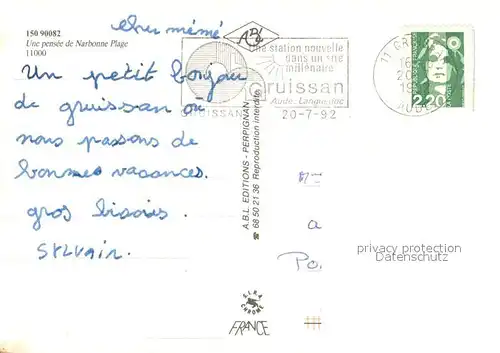 cher mémé
150 90082
Une pensée de Narbonne Plage
11000
Un petit bonjour
de gruissan où
nous passons de
bonnes vacances.
gros bisous.
SYLVAIN.
Une station nouvelle
dans un site
millénaire
Gruissan
Aude. Languedoc
GRUISSAN
20-7-92
11 GRUISSAN
AUDE
2,20
A.B.L. EDITIONS - PERPIGNAN
☎ 68 50 21 36 Reproduction interdite
a
Po
privacy protection
Datenschutz
FRANCE